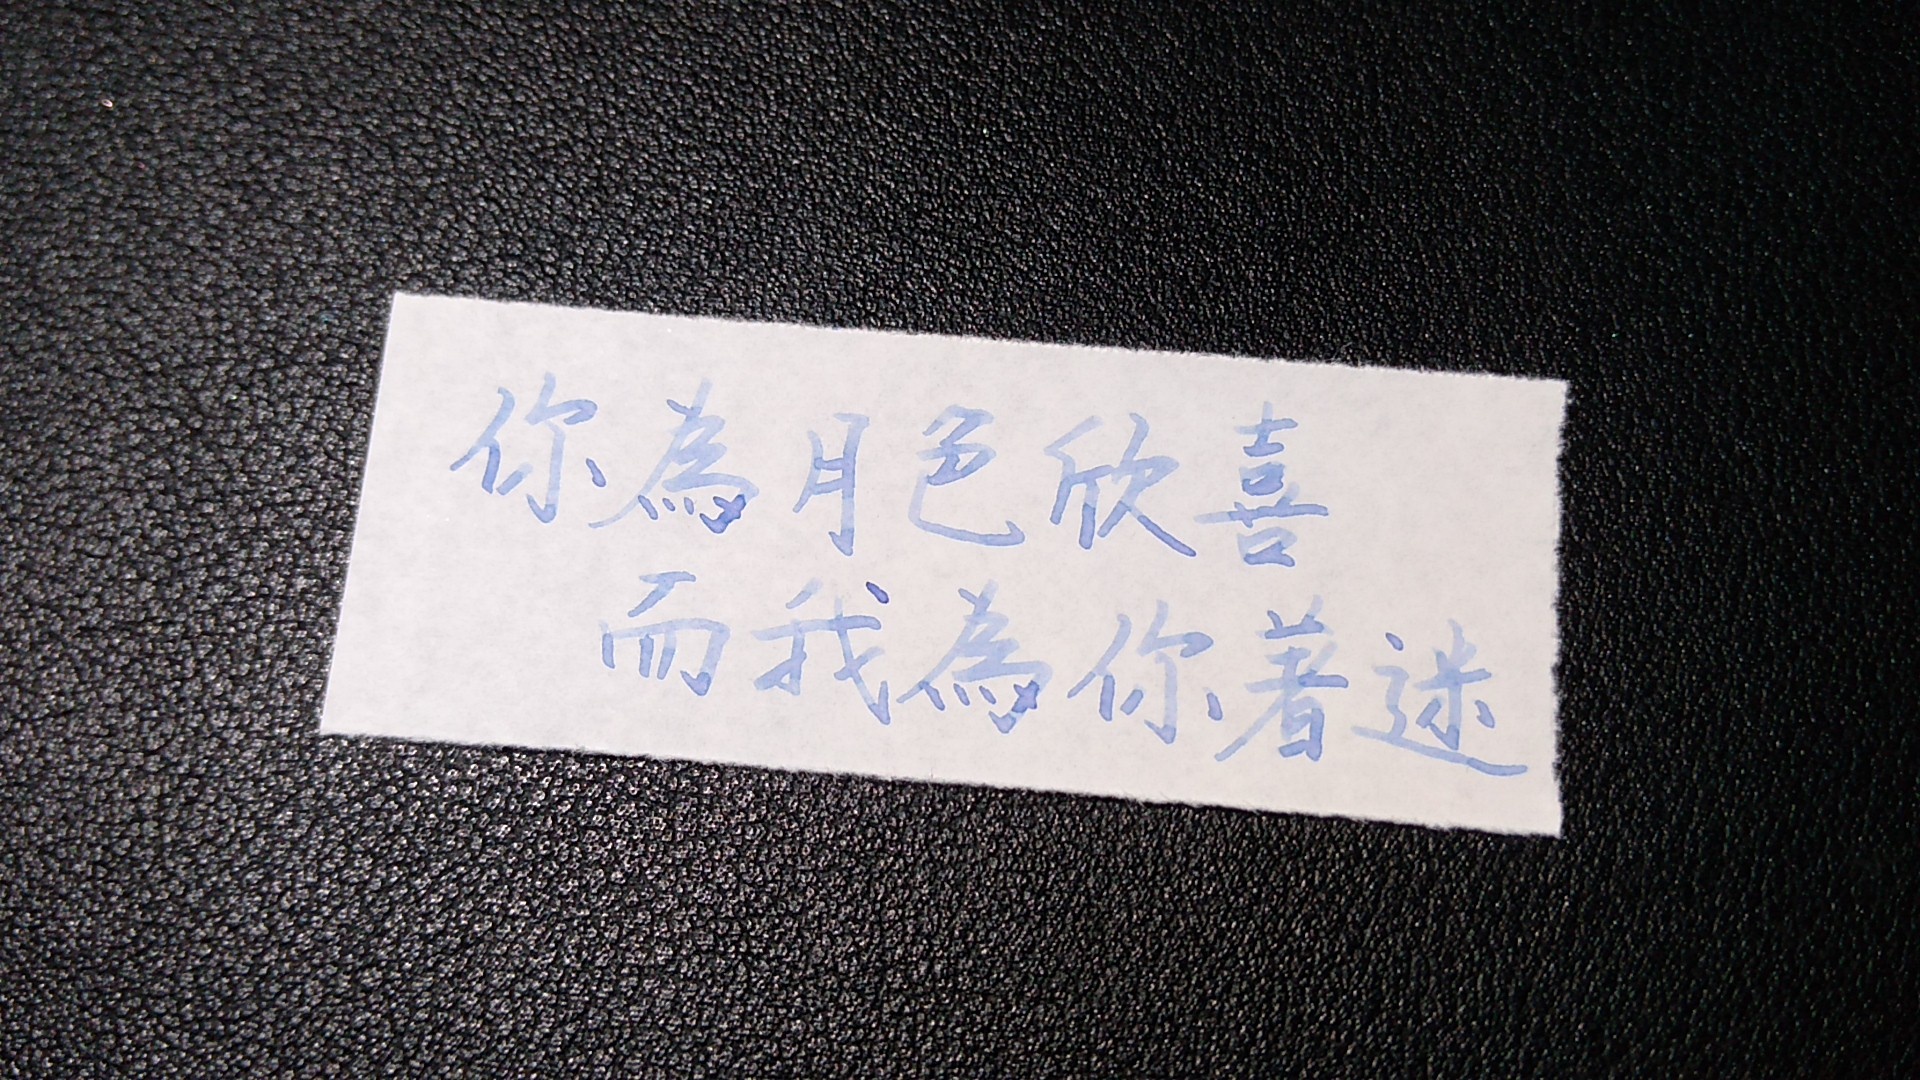 你為月色欣喜
而我為你著迷